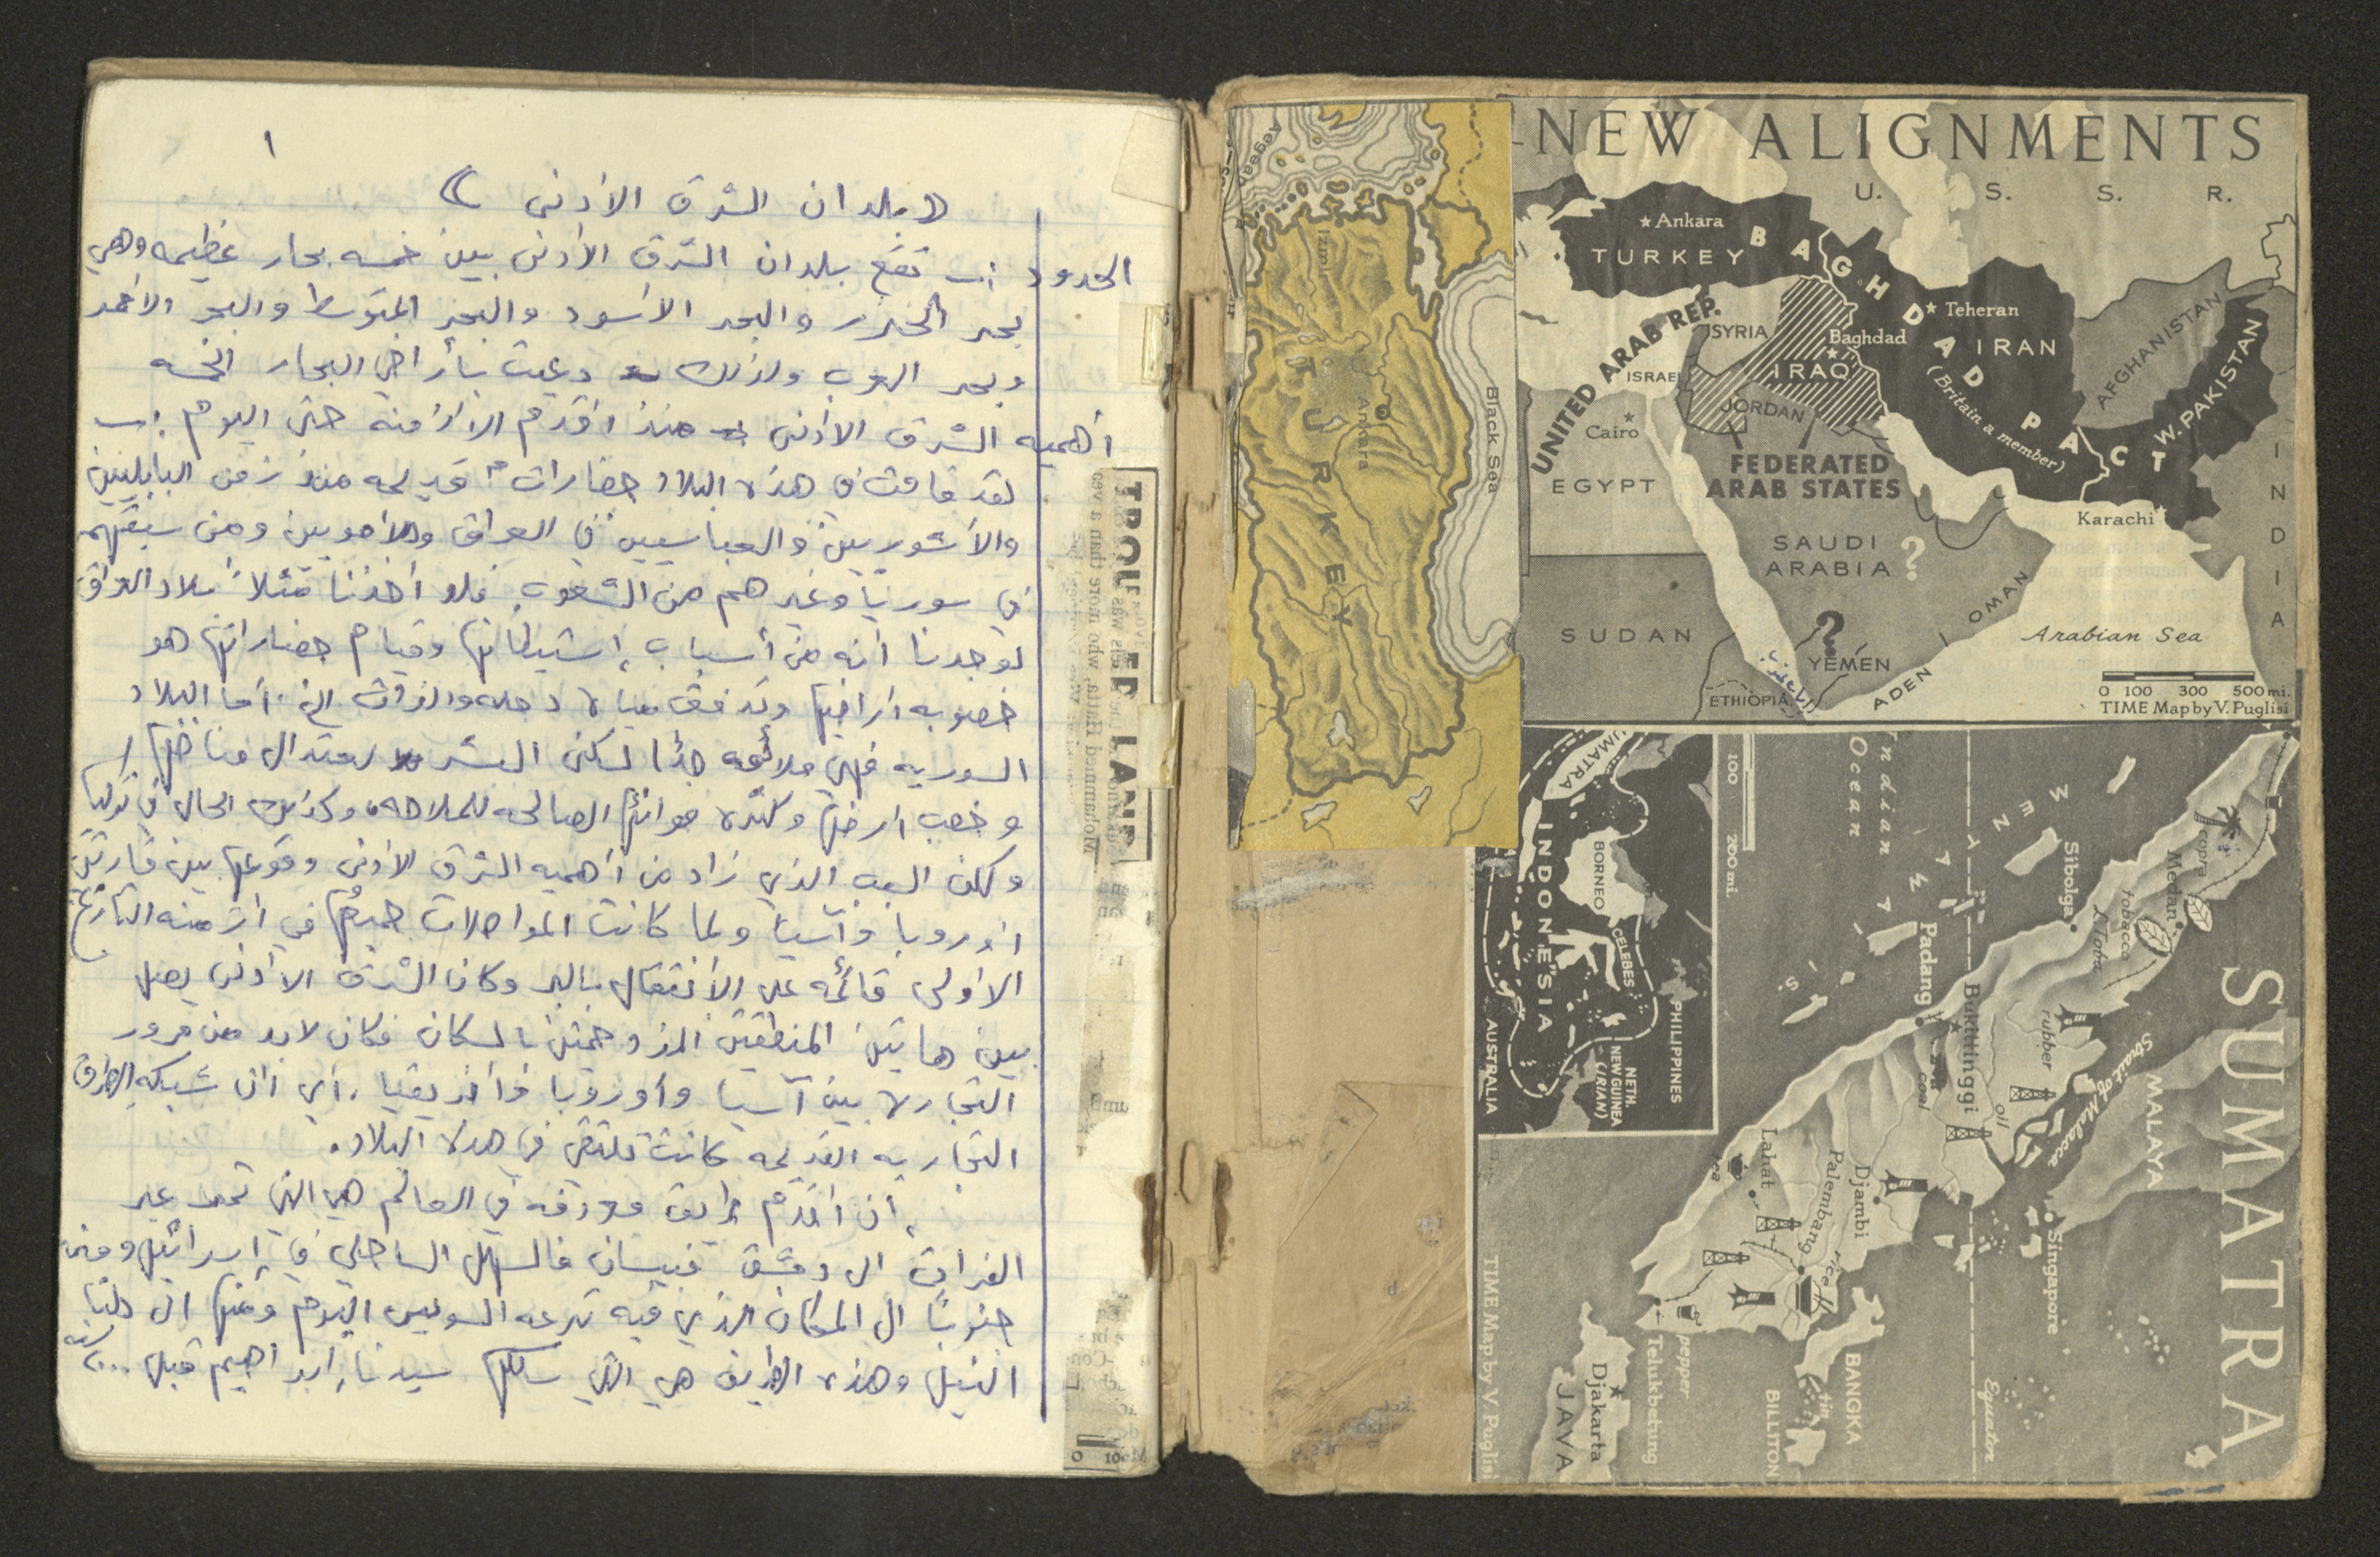 ١
« بلدان الشرق الأدنى »
الحدود :- تقع بلدان الشرق الأدنى بين خمسه بحار عظيمه وهي
بحر الخزر والبحر الأسود والبحر المتوسط والبحر الأحمر
وبحر العرب ولذلك دعيت بأراضي البحار الخمسه
أهميه الشرق الأدنى منذ أقدم الأزمنه حتى اليوم :-
لقد قامت في هذه البلاد حضارات قديمه منذ زمن البابليين
والأشوريين والعباسيين في العراق والأمويين ومن سبقهم
في سوريا وغيرهم من الشعوب. فلو أخذنا مثلاً بلاد العراق
لوجدنا أنه من أسباب إستيطانها وقيام حضاراتها هو
خصوبه أراضيها وتدفق مياه دجله والفرات الخ. أما البلاد
السوريه فهي ملائمه جداً لسكن البشر لإعتدال مناخها
وخصب أرضها وكثره موانئها الصالحه للملاحه، وكذلك الحال في تركيا
ولكن السبب الذي زاد من أهميه الشرق الأدنى وقوعها بين قارتي
أوروبا وآسيا ولما كانت المواصلات جميعها في أزمنه التاريخ
الأولى قائمه على الأنتقال بالبر وكان الشرق الأدنى يصل
بين هاتين المنطقتين المزدحمتين بالسكان فكان لابد من مرور
التجاره بين آسيا وأوروبا وأفريقيا. أي أن شبكه الطرق
التجاريه القديمه كانت تلتقي في هذه البلاد.
إن أقدم طريق معروفه في العالم هي التي تمر عبر
الفرات الى دمشق فبيسان فالسهل الساحلي في إسرائيل ومنه
جنوباً الى المكان الذي فيه ترعه السويس اليوم ومنها الى دلتا
النيل وهذه الطريق هي التي سلكها سيدنا إبراهيم قبل
سنه
TROU ED LAND
Mohammed Hatta, who more than a
0 100
NEW ALIGNMENTS
U. S. S. R.
★ Ankara
TURKEY
BAGHDAD PACT
(Britain a member)
★ Teheran
IRAN
AFGHANISTAN
W. PAKISTAN
UNITED ARAB REP.
SYRIA
Baghdad
★
IRAQ
ISRAEL
JORDAN
★
Cairo
EGYPT
FEDERATED
ARAB STATES
Karachi
INDIA
SAUDI
ARABIA
?
SUDAN
OMAN
Arabian Sea
?
YEMEN
ADEN
ETHIOPIA
0 100 300 500 mi.
TIME Map by V. Puglisi
Aegean
Izmir
Ankara
TURKEY
Black Sea
SUMATRA
Indian
Ocean
100 200 mi.
copra
Medan
tobacco
L. Toba
Sibolga
Padang
Bukittinggi
rubber
coal
oil
Strait of Malacca
MALAYA
Singapore
Djambi
Palembang
rice
Lahat
pepper
Telukbetung
BANGKA
tin
BILLITON
Equator
Djakarta
JAVA
TIME Map by V. Puglisi
SUMATRA
INDONESIA
BORNEO
CELEBES
PHILIPPINES
NETH.
NEW GUINEA
(IRIAN)
AUSTRALIA